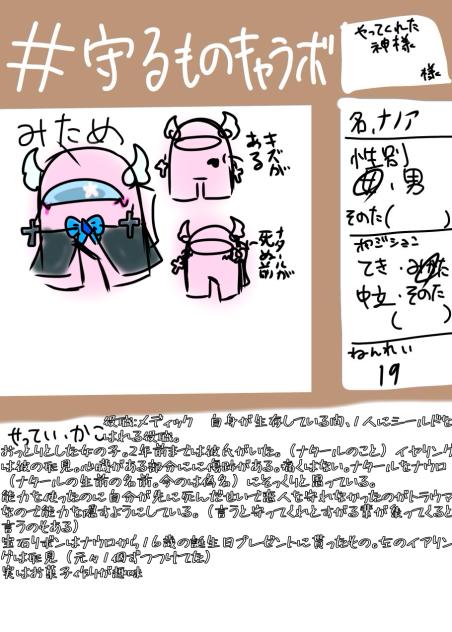 #守るものキャラボ
やってくれた
神様
様
みため
キズが
ある
ナタールが
死ぬ前
名、ナノア
性別
女・男
そのた( )
ポジション
てき・みかた
中立・そのた
( )
ねんれい
19
やってい、かこ
役職:メディック 自身が生存している内、1人にシールドを
はれる役職。
おっとりとした女の子。2年前までは彼氏がいた。(ナタールのこと)イヤリング
は彼の形見。心臓がある部分にに傷跡がある。痛くはない。ナタールをナウロ
(ナタールの生前の名前。今のは偽名)にそっくりと思っている。
能力を使ったのに自分が先に死んだせいで恋人を守れなかったのがトラウマ
なので能力を隠すようにしている。(言うと守ってくれとすがる輩が集ってくると
言うのそある)
宝石リボンはナウロから16歳の誕生日プレゼントに貰ったその。左のイアリン
グは形見(元々1個ずつつけてた)
実はお菓子作りが趣味